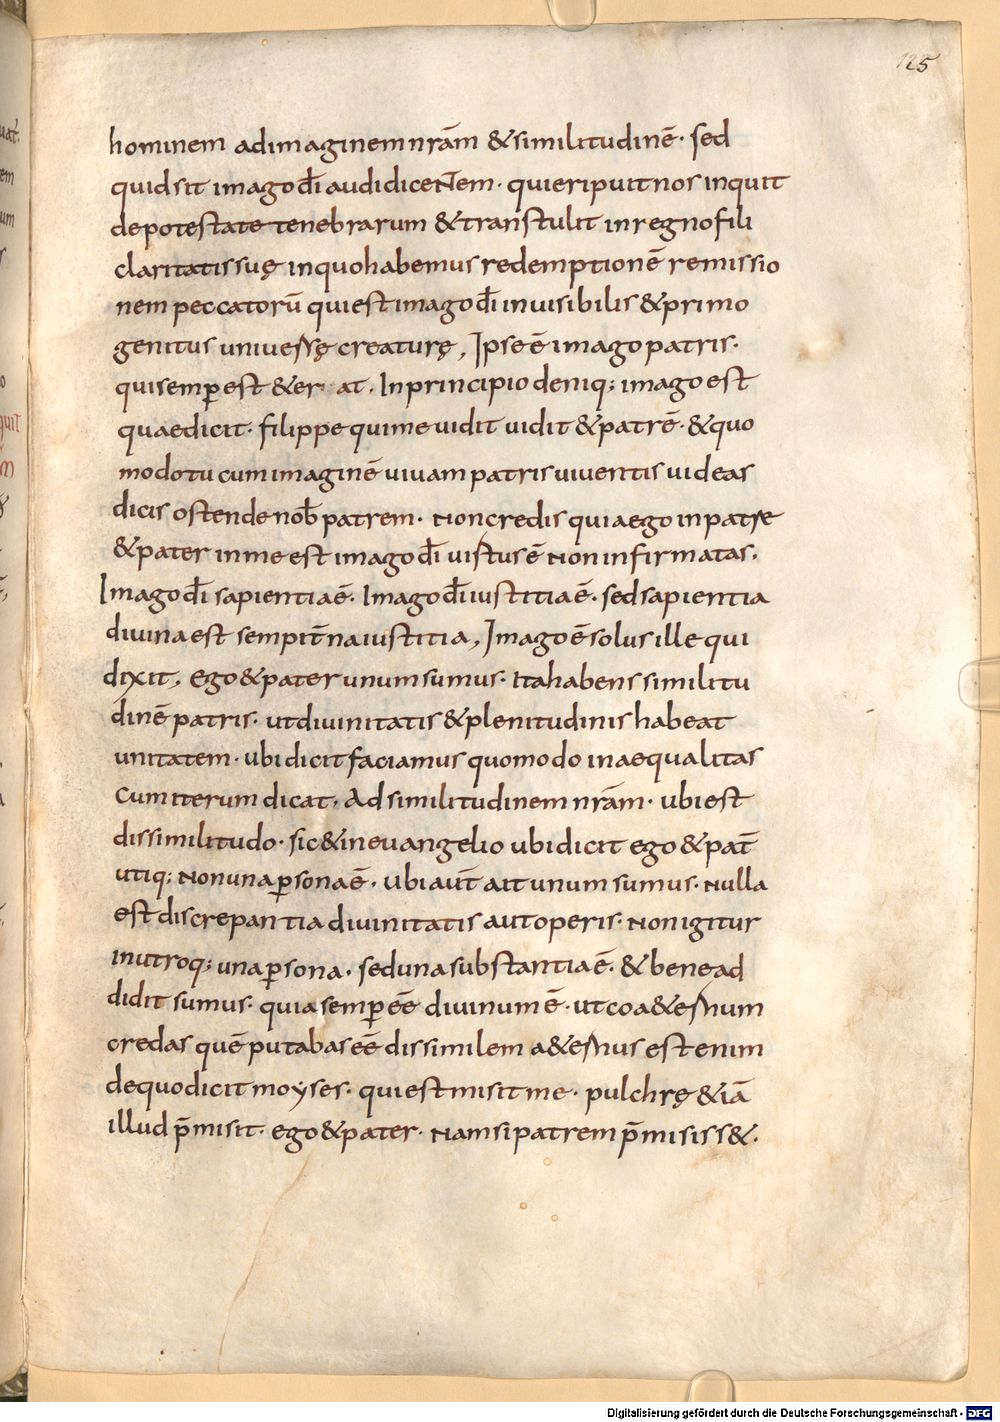 125
hominem adimaginemnrām &similitudinē· sed
quidsit imagodī audidiceNTem· quieripuitnos inquit
depotestate tenebrarum &transtulit inregnofili
claritatissuę inquohabemus redemptionē remissio
nem peccatorū quiestimagodī inuisibilis &primo
genitus uniuersę creaturę, Ipseē imagopatris·
quisemp̄est &er at. Inprincipio deniq; imagoest
quaedicit· filippe quimeuidit uidit &patrē· &quo
modotu cumimaginē uiuam patrisviventis uideas
dicis ostendenob̄ patrem· Noncredis quiaego inpatre
&pater inmeest imagodī uistusē Noninfirmatas.
Imagodī sapientiaē. Imagodīiustitiaē. sedsapientia
diuinaest sempit̄naiustitia, Imagoēsolusille qui
dixit, ego&pater unumsumus· Itahabens similitu
dinē patris· utdiuinitatis &plenitudinis habeat
unitatem· ubi dicitfaciamus quomodo inaequalitas
cumiterum dicat. Adsimilitudinem nrām· ubiest
dissimilitudo· sic&ineuangelio ubidicit ego&pat̄
utiq; Nonunap̄sonaē. ubiaut̄ aitunum sumus· Nulla
est discrepantia diuinitatis autoperis· Nonigitur
inutroq; unap̄sona. sedunasubstantiaē. &benead
didit sumus· quiasemp̄eē diuinumē· utcoa&ernum
credas quē putabaseē dissimilem a&ernus estenim
dequodicit moyses· quiestmisitme· pulchrę &iā
illud p̄misit· ego&pater· Namsipatrem p̄misiss&.
Digitalisierung gefördert durch die Deutsche Forschungsgemeinschaft - DFG